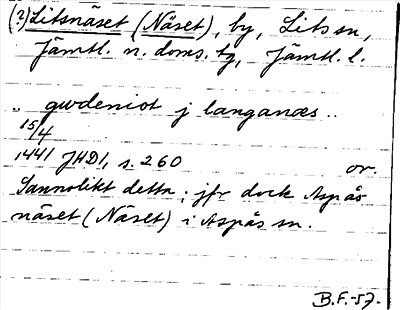 (?) Litsnäset (Näset), by, Lits sn,
Jämtl. n. doms. tg, Jämtl. l.
„ gwdeniot j langanæs ..
15/4
1441 JHD1, s. 260 or.
Sannolikt detta; jfr dock Aspås-
näset (Näset) i Aspås sn.
B.F.-57.